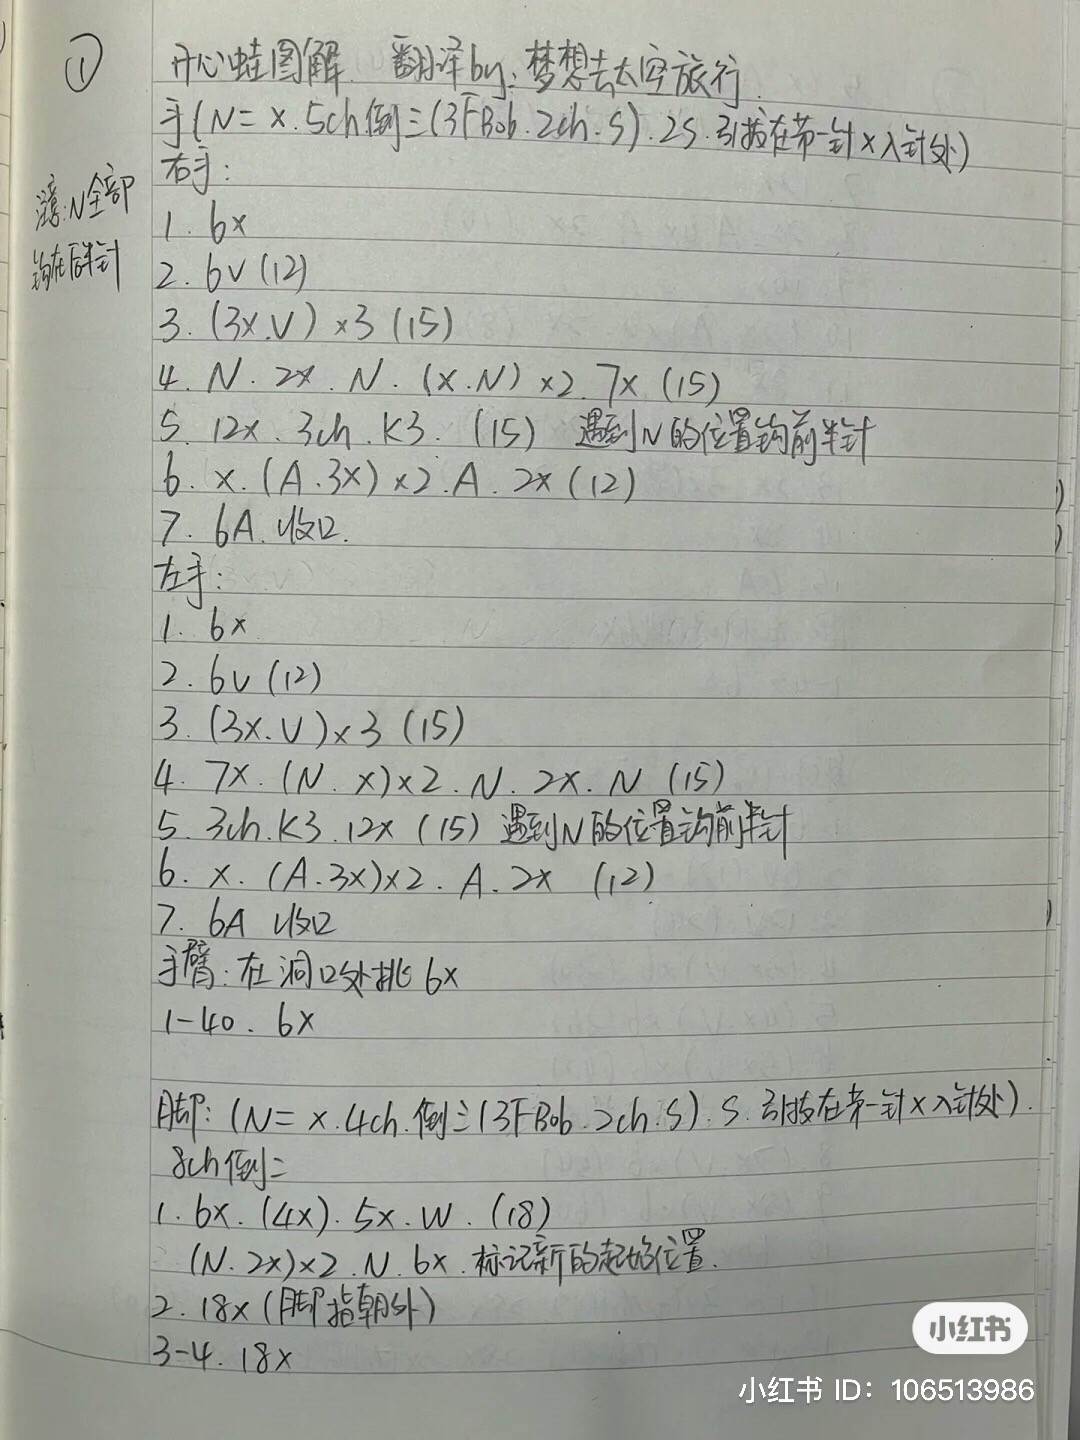 ①
开心蛙图解 翻译by:梦想去太空旅行.
手(N=x.5ch倒三(3FBob.2ch.s).2s.引拔在第一针x入针处)
注意:N全部
钩在后半针
右手:
1. 6x
2. 6v (12)
3. (3x.V) x3 (15)
4. N. 2x. N. (x.N) x2. 7x (15)
5. 12x. 3ch. K3. (15) 遇到N的位置钩前半针
6. x. (A.3x) x2. A. 2x (12)
7. 6A. 收口.
左手:
1. 6x
2. 6v (12)
3. (3x.V) x3 (15)
4. 7x. (N. x) x2. N. 2x. N (15)
5. 3ch. K3. 12x (15) 遇到N的位置钩前半针
6. x. (A.3x) x2. A. 2x (12)
7. 6A 收口
手臂: 在洞口处挑6x
1-40. 6x
脚: (N= x. 4ch. 倒三(3FBob. 2ch. s). s. 引拔在第一针x入针处).
8ch倒二
1. 6x. (4x). 5x. W. (18)
(N. 2x) x2. N. 6x. 标记新的起始位置.
2. 18x (脚指朝外)
3-4. 18x
小红书
小红书 ID: 106513986